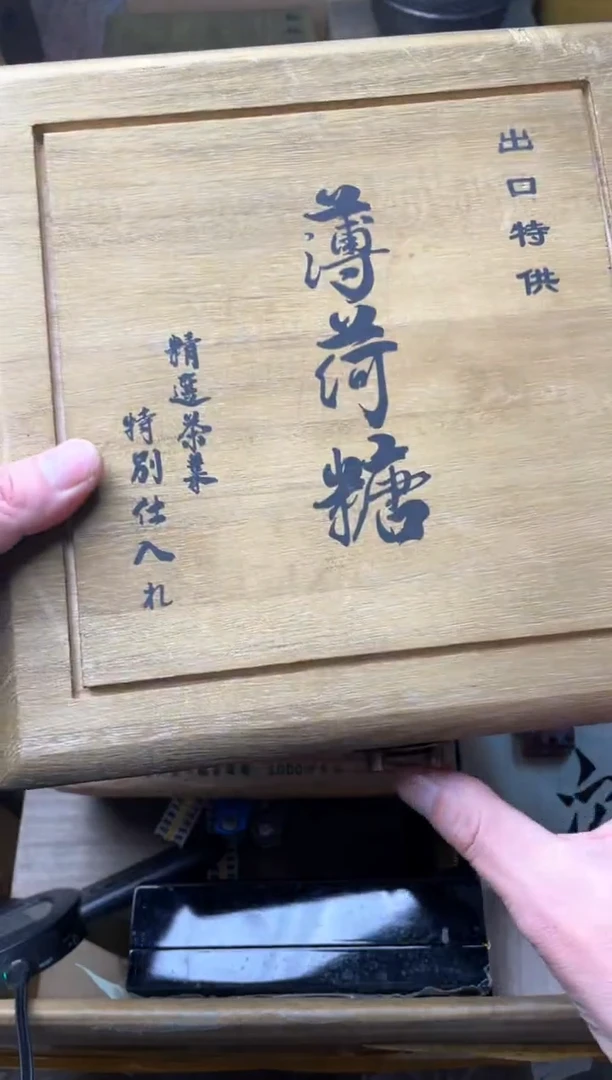 出口特供
薄荷糖
精選茶菓
特別仕入札